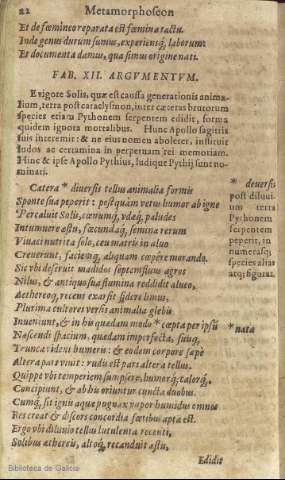 22 Metamorphoseon
Et de fœmineo reparata est fœmina tactu.
Inde genus durum sumus, experiensq́; laborum:
Et documenta damus, qua simus origine nati.
FAB. XII. ARGVMENTVM.
E vigore Solis, quæ est caussa generationis anima-
lium, terra post cataclysmon, inter cæteras brutorum
species etiam Pythonem serpentem edidit, formæ
quidem ignotæ mortalibus. Hunc Apollo sagittis
suis interemit: & ne eius nomen aboleret, instituit
ludos ac certamina in perpetuam rei memoriam.
Hinc & ipse Apollo Pythius, ludique Pythij sunt no-
minati.
Cætera * diversis tellus animalia formis
Sponte sua peperit: postquàm vetus humor ab igne
Percaluit Solis, cœnumq́, vdæq́, paludes
Intumuere æstu, fœcundaq́, semina rerum
Vivaci nutrita solo, ceu matris in alvo
Creverunt, faciemq́, aliquam cœpere morando.
Sic vbi deseruit madidos septemfluus agros
Nilus, & antiquo sua flumina reddidit alveo,
Aethereoq́, recens exarsit sidere limus,
Plurima cultores versis animalia glebis
Inveniunt, & in his quædam modò * cœpta per ipsū
Nascendi spacium, quædam imperfecta, suisq́,
Trunca vident humeris: & eodem corpore sæpè
Altera pars vivit: rudis est pars altera tellus.
Quippe vbi temperiem sumpsere, humorq́; calorq́,
Concipiunt, & ab his oriuntur cuncta duobus.
Cumq́, sit ignis aquæ pugnax, vapor humidus omnes
Res creat & discors concordia fœtibus apta est.
Ergo vbi diluvio tellus lutulenta recenti,
Solibus æthereis, altoq́, recanduit æstu,
Edidit
* deversis
post diluvi-
um terra
Pythonem
serpentem
peperit, in
numerasq;
species alias
atq; figuras.
* nata
Biblioteca de Galicia